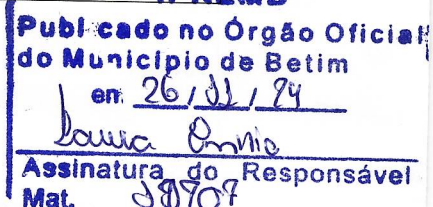 Publicado no Órgão Oficial
do Município de Betim
em 26/11/24
Assinatura do Responsável
Mat.